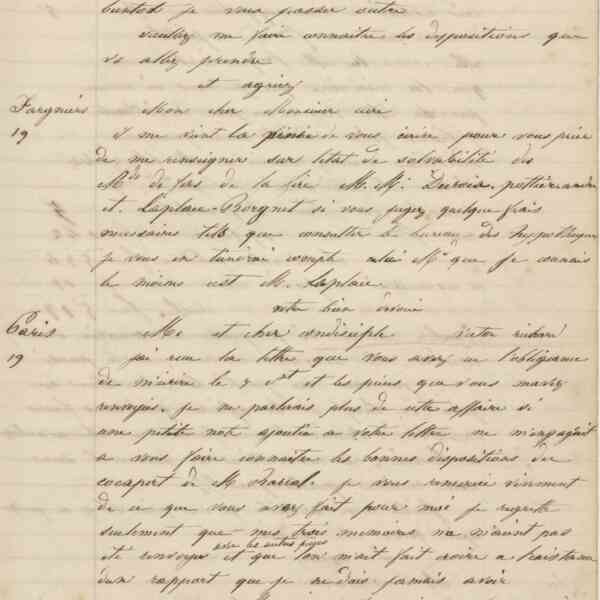 je vous passer outre
veuillez me faire connaitre les dispositions que
vs allez prendre
et agréez
Fargniers Mon cher Monsieur
19 il me vient la pensée de vous écrire pour vous prier
de me renseigner sur letat de solvabilité des
Mds de fers de la fère M.M. pottier
et Laplace-Borgnet si vous jugez quelque frais
necessaires tels que consulter le bureau des hypotheques
je vous en tiendrai compte celui Mr que je connais
le moins est M. Laplace
votre bien devoué
Paris Mr et cher condisciple Victor
19 jai recu la lettre que vous avez eu l'obligeance
de mecrire le 7 ct et les pieces que vous mavez
renvoyées. je ne parlerais plus de cette affaire si
une petite note ajoutée a votre lettre ne m'engageait
a vous faire connaitre les bonnes dispositions du
de M Raspal. je vous remercie vivement
de ce que vous avez fait pour moi je regrette
seulement que mes trois memoires ne m'aient pas
été renvoyés avec les autres pieces et que l'on m'ait fait croire a
dun rapport que je ne dois jamais avoir